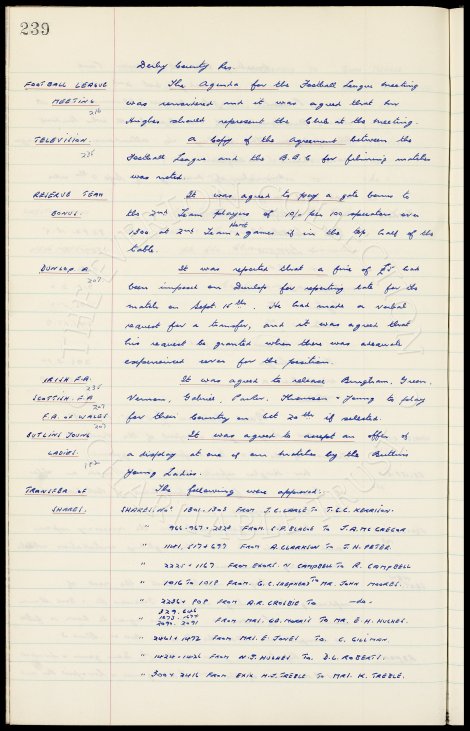 239
Derby County Res.
FOOTBALL LEAGUE The Agenda for the Football League meeting
MEETING. was considered and it was agreed that Mr
216 Hughes should represent the Club at the meeting.
TELEVISION. A Copy of the Agreement between the
235 Football League and the B.B.C for filming matches
was noted.
RESERVE TEAM It was agreed to pay a gate bonus to
BONUS. the 2nd Team players of 10/- per 100 spectators over
1300 at 2nd Team Home games if in the top half of the
table.
DUNLOP. A. It was reported that a fine of £5 had
207 been imposed on Dunlop for reporting late for the
match on Sept 15th. He had made a verbal
request for a transfer, and it was agreed that
his request be granted when there was adequate
experienced cover for the position.
IRISH F.A. It was agreed to release Bingham, Green,
235
SCOTTISH. F.A Vernon, Gabriel, Parker, Thomson + Young to play
207
F.A. OF WALES for their Country on Oct 20th if selected.
207
BUTLINS YOUNG It was agreed to accept an offer of
LADIES. a display at one of our matches by the Butlins
182 Young Ladies.
TRANSFER OF The following were approved:
SHARES. SHARES. Nos 1801-1803 FROM J.C. LARGE TO T.G.C. KERRISON.
" 966-967 + 2324 FROM. C.P. BLAGUE TO J.A. MCGREGOR.
" 1121, 517 + 697 FROM A. CLARKSON TO J.H. PETER.
" 2225 + 1167 FROM EXORS. N CAMPBELL TO R. CAMPBELL
" 1916 TO 1918 FROM. G.C. SHEPHERD TO MR. JOHN MOORES.
" 2236 + 808 FROM A.R. CROSBIE TO -do-
" 329. 646
1673-1674
2090. 2091 FROM MRS. G.B. MORRIS TO MR. E.H. HUGHES.
" 2461 + 1472 FROM MRS. E. JONES TO. C. GILLMAN
" 1424-1426 FROM N.G. HUGHES TO. D.L. ROBERTS.
" 300 + 2416 FROM EXIX. H.J. TREBLE TO MRS. K. TREBLE.